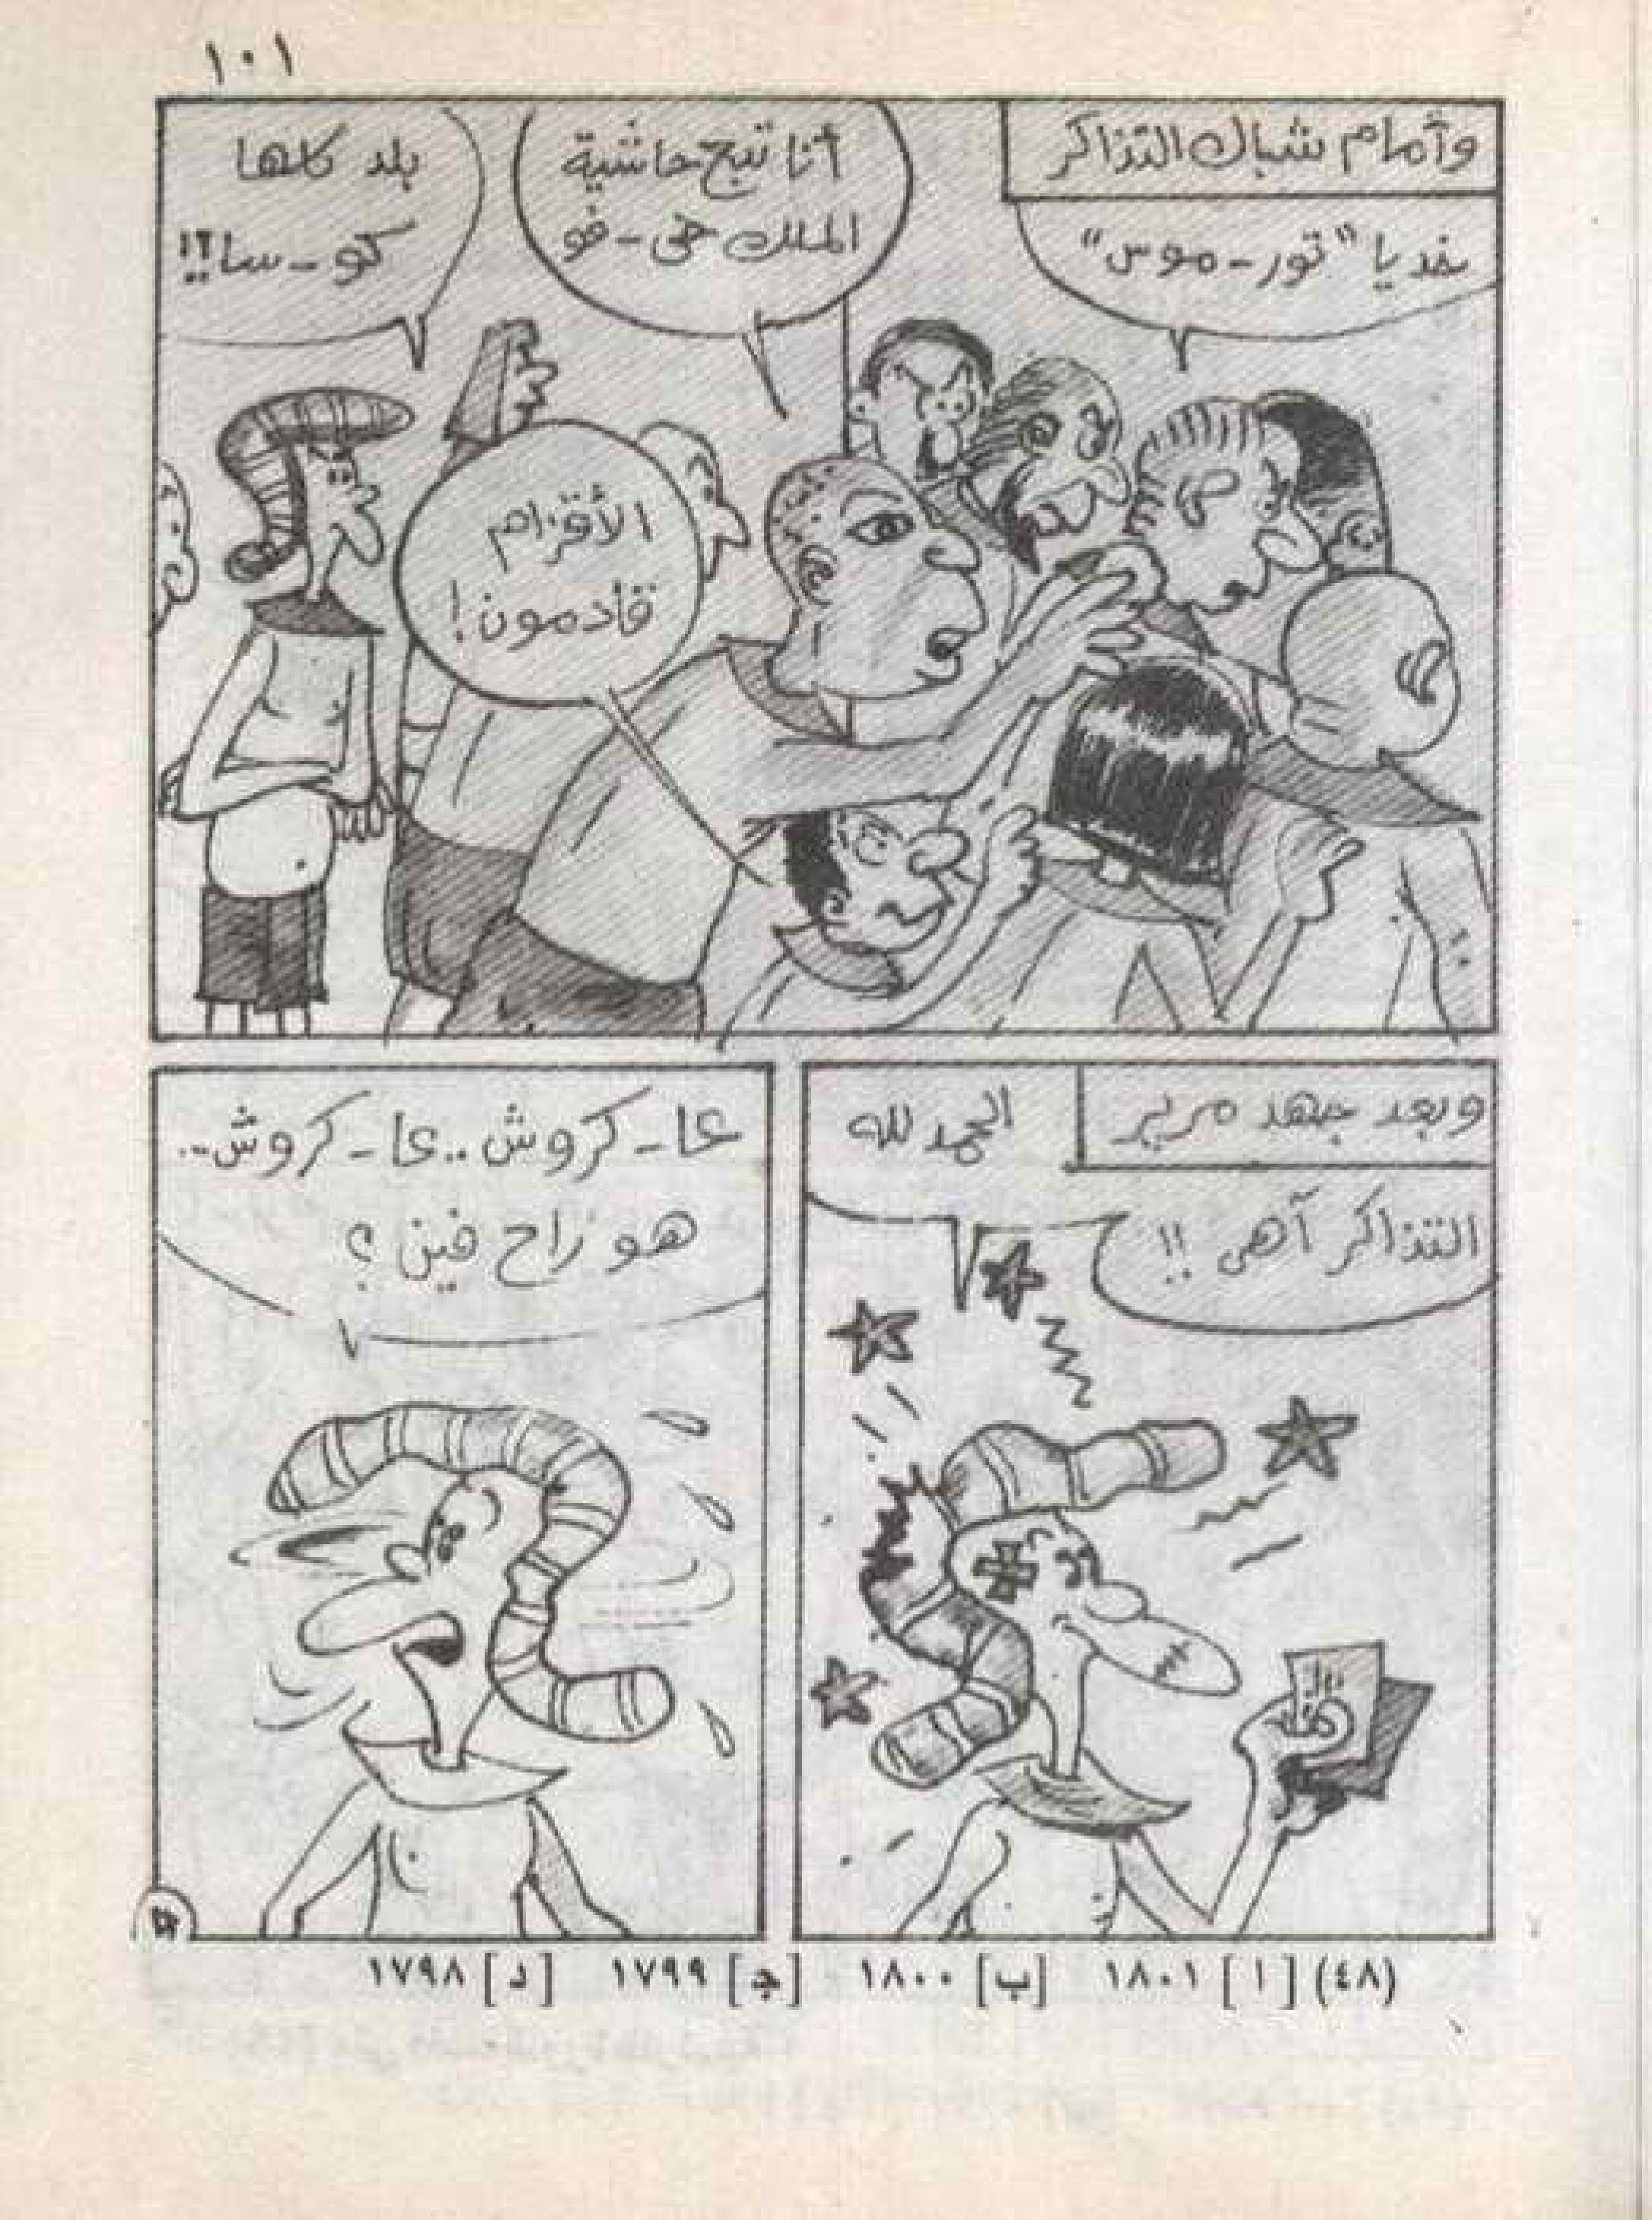 ١٠١
وأمام شباك التذاكر
خد يا "تور - موس"
أنا تبع حاشية
الملك خى - فو
بلد كلها
كو - سا!!
الأقزام
قادمون!
وبعد جهد مرير
التذاكر آهى !!
الحمد لله
عا - كروش .. عا - كروش ..
هو راح فين ؟
(٤٨) [ ا ] ١٨٠١ [ب] ١٨٠٠ [جـ] ١٧٩٩ [د] ١٧٩٨